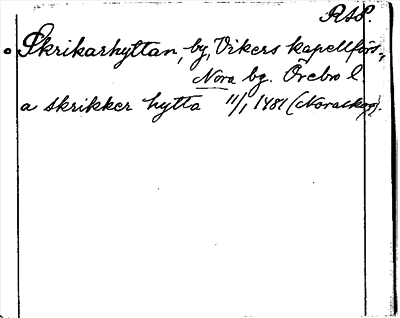 RAP.
Skrikarhyttan, by, Vikers kapellförs.,
Nora bg. Örebro l
a skrikker hytta 11/1 1481 (Noraskog).